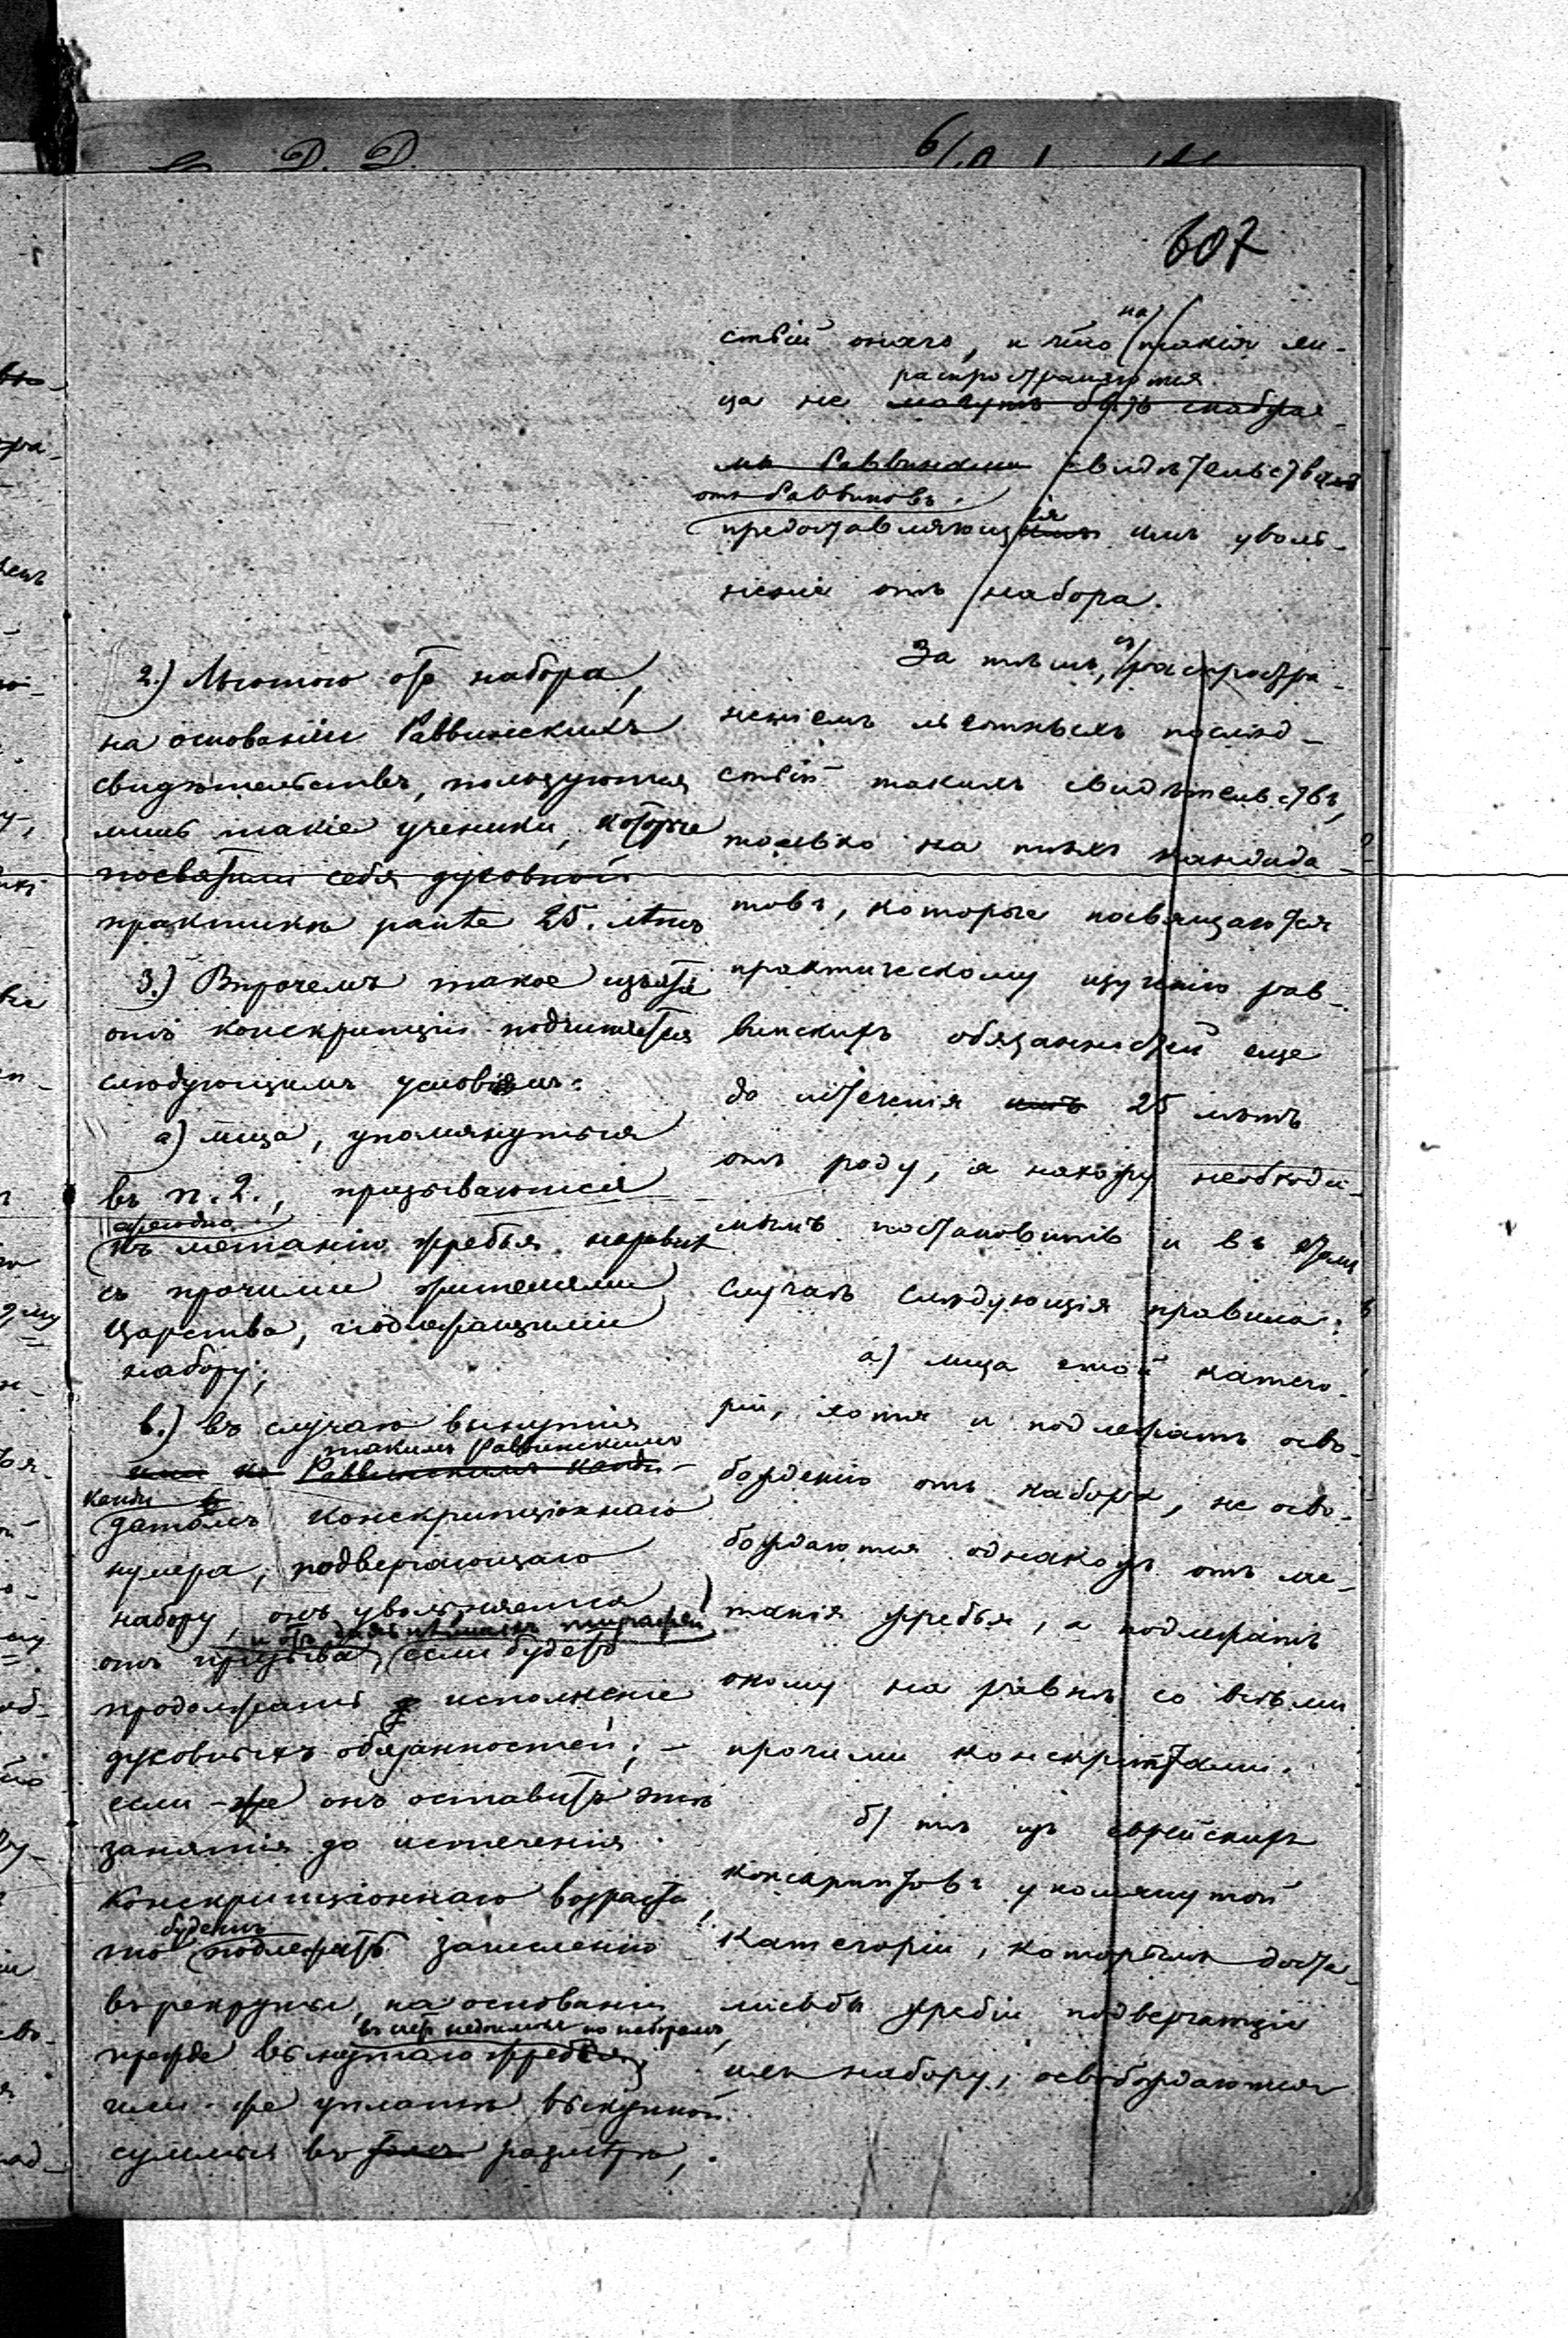 607
ствій онаго, и что на такія ли-
ца не распространяются
могутъ быть снабжа-
мы Раввинами свидѣтельства
отъ Раввиновъ,
предоставляющія имъ уволь-
неніе отъ набора.
За тѣмъ, съ распростра-
неніемъ льготныхъ послѣд-
ствій такихъ свидѣтельствъ,
только на тѣхъ кандида-
товъ, которые посвящаются
практическому изученію рав-
винскихъ обязанностей еще
до истеченія имъ 25 лѣтъ
отъ роду, я нахожу необходи-
мымъ постановить и въ этомъ
случаѣ слѣдующія правила:
а) лица этой катего-
ріи, хотя и подлежатъ осво-
божденію отъ набора, не осво-
бождаются однакожъ отъ ме-
танія жребья, а подлежатъ
оному на равнѣ со всѣми
прочими конскриптами.
б) тѣ изъ еврейскихъ
конскриптовъ упомянутой
категоріи, которымъ доста-
лись бы жребіи подвергающіе
ихъ набору, освобождаются
2.) Льготою отъ набора,
на основаніи Раввинскихъ
свидѣтельствъ, пользуются
лишь такіе ученики, которые
посвятили себя духовной
практикѣ ранѣе 25. лѣтъ
3.) Впрочемъ такое изъятіе
отъ конскрипціи подчиняется
слѣдующимъ условіямъ:
а) лица, упомянутыя
въ п. 2., призываются
ежегодно
къ метанію жребья наравнѣ
съ прочими жителями
Царства, подлежащими
набору;
в.) въ случаѣ вынутія
такимъ Раввинскимъ
ими Раввинскимъ канди-
канди
датомъ конскрипціоннаго
нумера, подвергающаго
набору, онъ увольняется
отъ призыва, если будетъ
продолжать исполненіе
духовныхъ обязанностей; —
если-же онъ оставитъ эти
занятія до истеченія
конскрипціоннаго возраста,
будетъ
то подлежать зачисленію
въ рекруты, на основаніи
прежде вынутаго жребья,
или-же уплатѣ выкупной
суммы въ размѣрѣ,